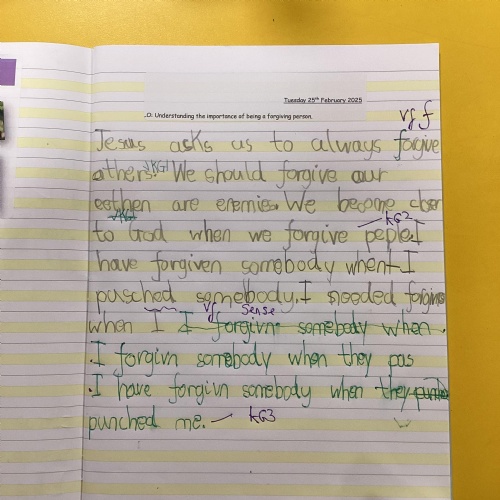 Tuesday 25th February 2025
.O. Understanding the importance of being a forgiving person.
vf f
Jesus asks us to always forgive
others. KG1 We should forgive our
are enemies. We become closer
KG1 KG2
to God when we forgive peple. I
have forgiven somebody when I
pusched somebody. I needed forgivns
vf sense
when I I forgivn somebody when.
.I forgivn somebody when they pas
.I have forgivn somebody when they
punched me. — KG3